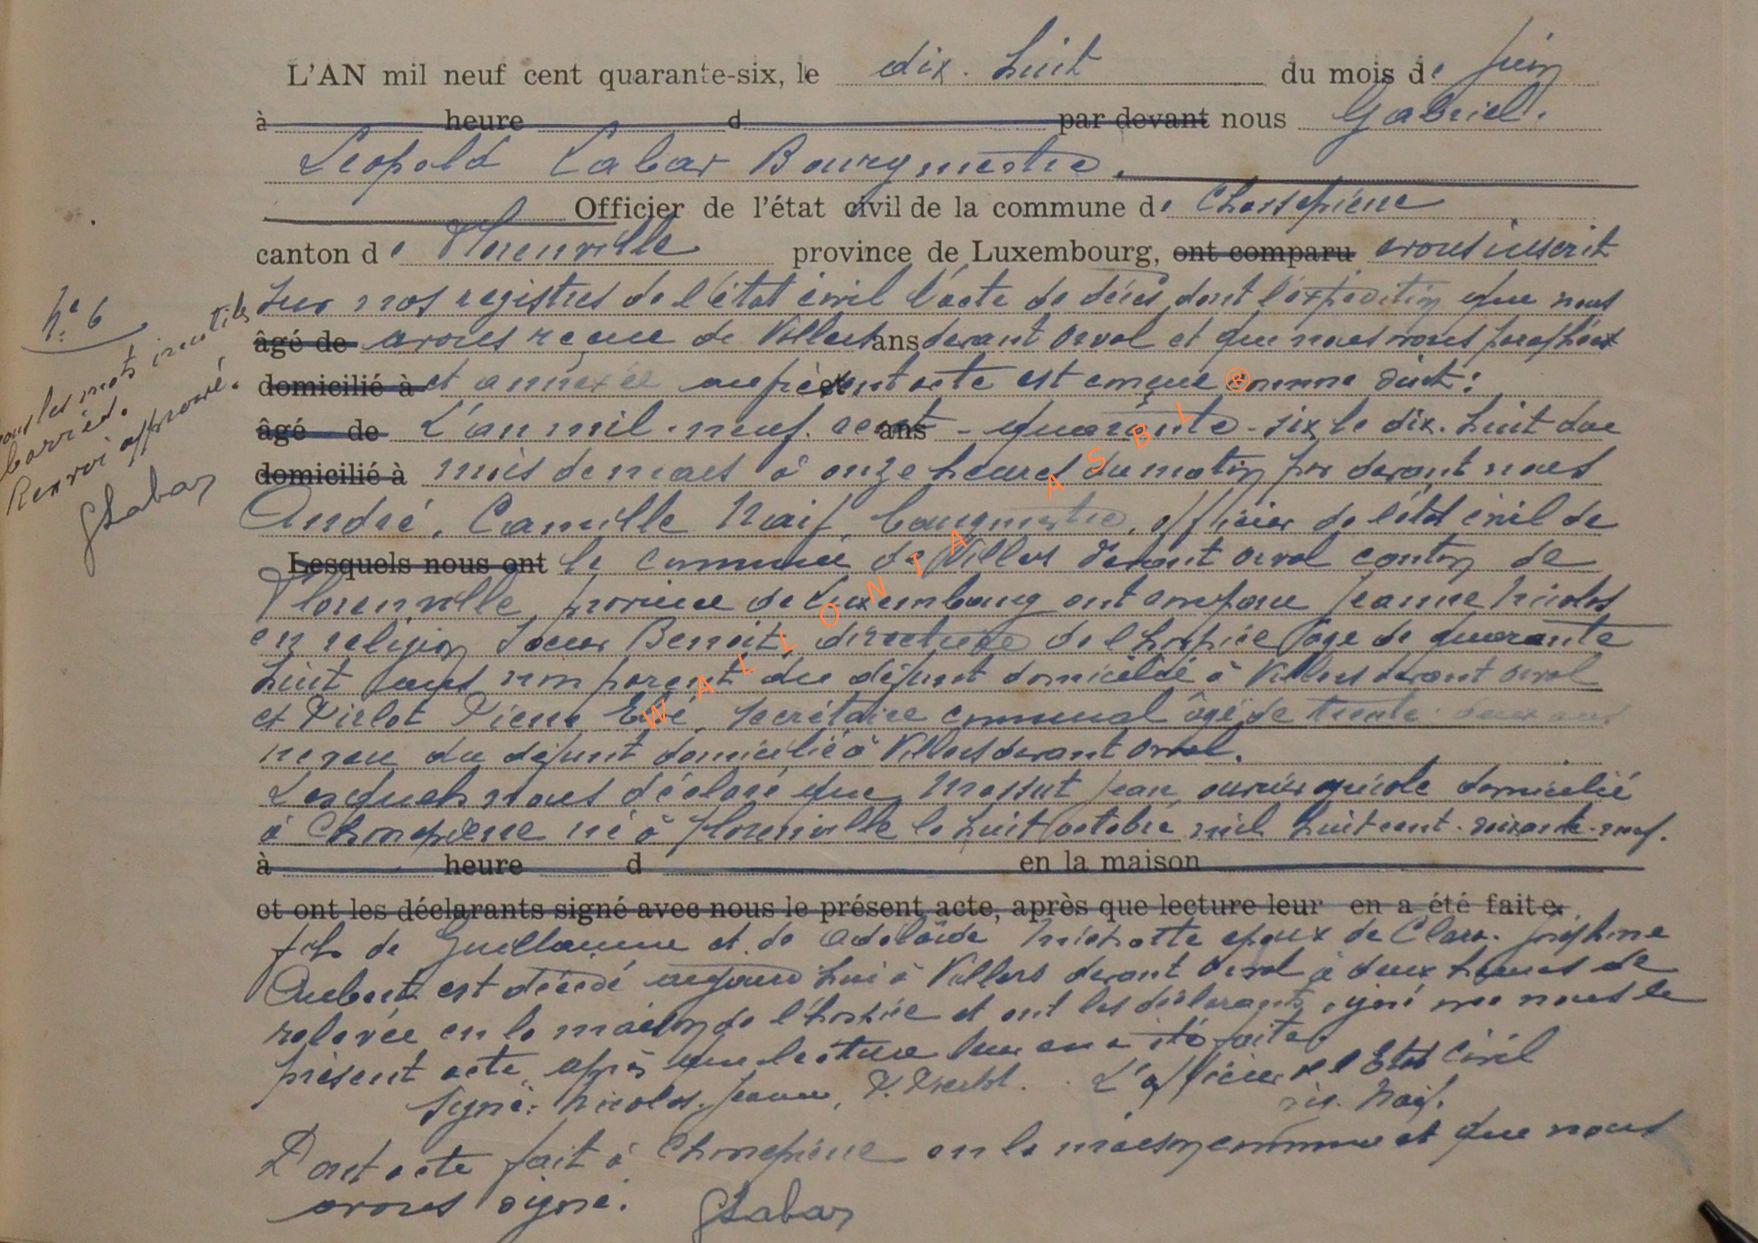 L'AN mil neuf cent quarante-six, le dix-huit du mois de juin
à heure d par devant nous Gabriel.
Leopold Labar Bourgmestre.
Officier de l'état civil de la commune de Chassepierre
canton de Florenville province de Luxembourg, ont comparu avons inscrit
sur nos registres de l'état civil l'acte de décès dont l'expédition que nous
âgé de avons reçue de Villers ans devant Orval et que nous avons paraphée
domicilié à et annexée au présent acte est conçue comme suit:
âgé de L'an mil-neuf-cent ans - quarante-six le dix-huit du
domicilié à mois de mars à onze heures du matin par devant nous
André, Camille Naif, bourgmestre, officier de l'état civil de
Lesquels nous ont la commune de Villers devant Orval canton de
Florenville, province de Luxembourg ont comparu Jeanne Nicolas
en religion Soeur Benoit, directrice de l'hospice âge de quarante
huit ans non parent du défunt domiciliée à Villers devant Orval
et Pierre secrétaire communal âgé de trente deux ans
neveu du défunt domicilié à Villers devant Orval.
Lesquels nous déclaré que Jean, ouvrier agricole domicilié
à Chassepierre né à Florenville le huit octobre mil huit cent-soixante-neuf.
à heure d en la maison
et ont les déclarants signé avec nous le présent acte, après que lecture leur en a été faite
fils de Guillaume et de Adelaïde époux de Clara-Joséphine
est décédé aujourd'hui à Villers devant Orval à deux heures de
relevée en la maison de l'hospice et ont les déclarants signé avec nous le
présent acte, après que lecture leur en a été faite.
Signé: Nicolas Jeanne, P. L'officier de l'Etat Civil
sig. Naif.
Dont acte fait à Chassepierre en la maison commune et que nous
avons signé. GLabar
N° 6
les mots inutiles
barrés.
Renvoi approuvé.
GLabar
WALLONIA ASBL ®